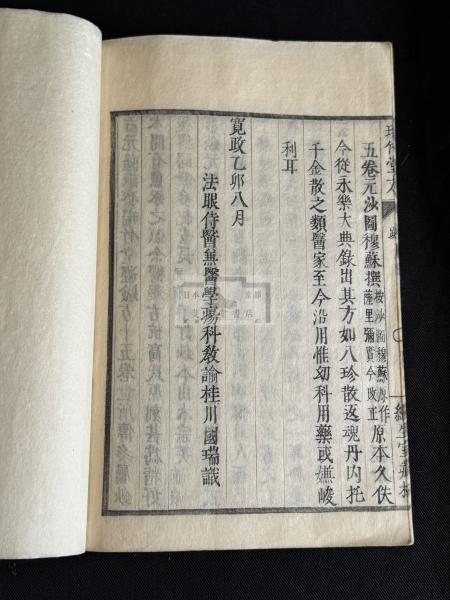 五卷元沙圖穆蘇撰按沙圖穆蘇原作薩里彌實今改正原本久佚
今從永樂大典錄出其方如八珍散返魂丹內托
千金散之類醫家至今沿用惟幼科用藥或嫌峻
利耳
寬政乙卯八月
法眼侍醫兼醫學瘍科教諭桂川國瑞識